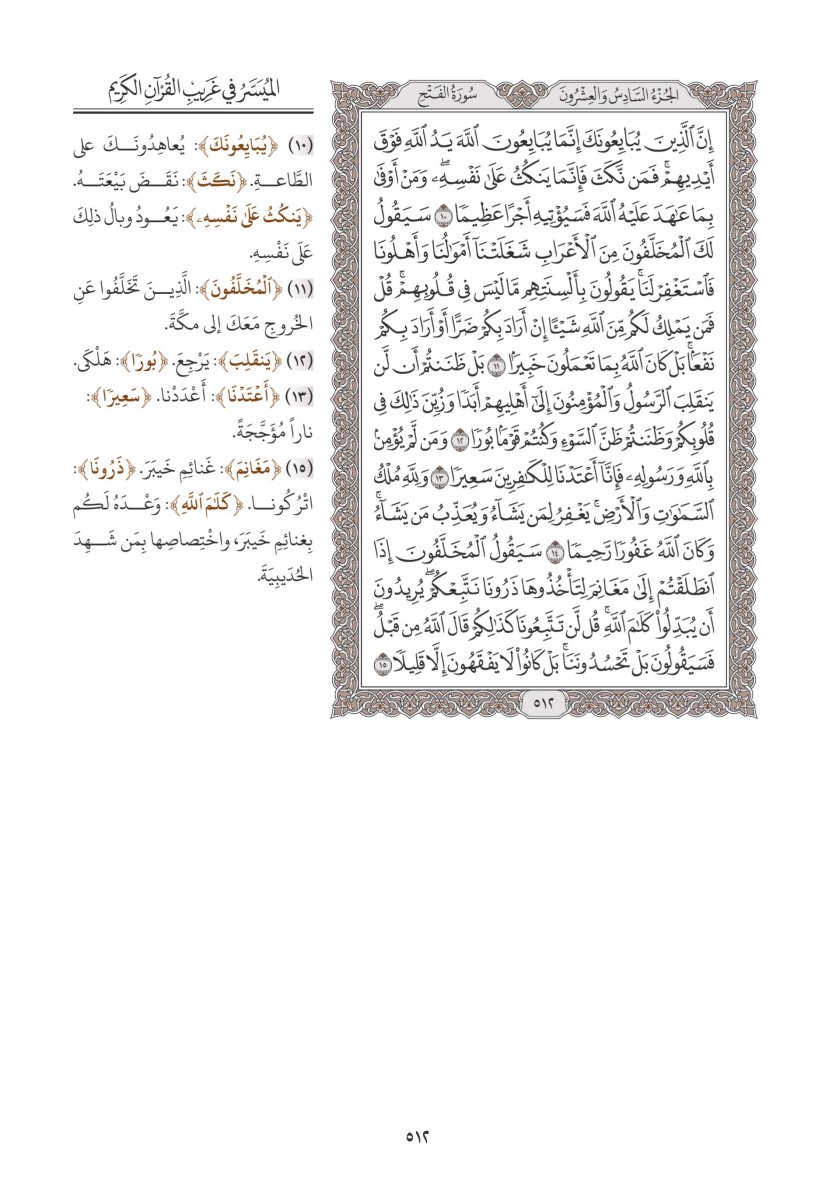 الجُزْءُ السَّادِسُ وَالعِشْرُونَ
سُورَةُ الفَتْحِ
إِنَّ ٱلَّذِينَ يُبَايِعُونَكَ إِنَّمَا يُبَايِعُونَ ٱللَّهَ يَدُ ٱللَّهِ فَوْقَ
أَيْدِيهِمْۚ فَمَن نَّكَثَ فَإِنَّمَا يَنكُثُ عَلَىٰ نَفْسِهِۦۖ وَمَنْ أَوْفَىٰ
بِمَا عَٰهَدَ عَلَيْهُ ٱللَّهَ فَسَيُؤْتِيهِ أَجْرًا عَظِيمًا ١٠ سَيَقُولُ
لَكَ ٱلْمُخَلَّفُونَ مِنَ ٱلْأَعْرَابِ شَغَلَتْنَآ أَمْوَٰلُنَا وَأَهْلُونَا
فَٱسْتَغْفِرْ لَنَاۚ يَقُولُونَ بِأَلْسِنَتِهِم مَّا لَيْسَ فِى قُلُوبِهِمْۚ قُلْ
فَمَن يَمْلِكُ لَكُم مِّنَ ٱللَّهِ شَيْـًٔا إِنْ أَرَادَ بِكُمْ ضَرًّا أَوْ أَرَادَ بِكُمْ
نَفْعًۢاۚ بَلْ كَانَ ٱللَّهُ بِمَا تَعْمَلُونَ خَبِيرًۢا ١١ بَلْ ظَنَنتُمْ أَن لَّن
يَنقَلِبَ ٱلرَّسُولُ وَٱلْمُؤْمِنُونَ إِلَىٰٓ أَهْلِيهِمْ أَبَدًا وَزُيِّنَ ذَٰلِكَ فِى
قُلُوبِكُمْ وَظَنَنتُمْ ظَنَّ ٱلسَّوْءِ وَكُنتُمْ قَوْمًۢا بُورًا ١٢ وَمَن لَّمْ يُؤْمِنۢ
بِٱللَّهِ وَرَسُولِهِۦ فَإِنَّآ أَعْتَدْنَا لِلْكَٰفِرِينَ سَعِيرًا ١٣ وَلِلَّهِ مُلْكُ
ٱلسَّمَٰوَٰتِ وَٱلْأَرْضِۚ يَغْفِرُ لِمَن يَشَآءُ وَيُعَذِّبُ مَن يَشَآءُۚ
وَكَانَ ٱللَّهُ غَفُورًا رَّحِيمًا ١٤ سَيَقُولُ ٱلْمُخَلَّفُونَ إِذَا
ٱنطَلَقْتُمْ إِلَىٰ مَغَانِمَ لِتَأْخُذُوهَا ذَرُونَا نَتَّبِعْكُمْۖ يُرِيدُونَ
أَن يُبَدِّلُوا۟ كَلَٰمَ ٱللَّهِۚ قُل لَّن تَتَّبِعُونَا كَذَٰلِكُمْ قَالَ ٱللَّهُ مِن قَبْلُۖ
فَسَيَقُولُونَ بَلْ تَحْسُدُونَنَاۚ بَلْ كَانُوا۟ لَا يَفْقَهُونَ إِلَّا قَلِيلًا ١٥
٥١٢
المُيَسَّرُ في غَرِيبِ القُرْآنِ الكَرِيم
(١٠) ﴿يُبَايِعُونَكَ﴾: يُعاهِدُونَكَ على
الطَّاعةِ. ﴿نَكَثَ﴾: نَقَضَ بَيْعَتَهُ.
﴿يَنكُثُ عَلَىٰ نَفْسِهِۦ﴾: يَعُودُ وبالُ ذلِكَ
عَلَى نَفْسِهِ.
(١١) ﴿ٱلْمُخَلَّفُونَ﴾: الَّذِينَ تَخَلَّفُوا عَنِ
الخُروجِ مَعَكَ إلى مكَّةَ.
(١٢) ﴿يَنقَلِبَ﴾: يَرْجِعَ. ﴿بُورًا﴾: هَلْكَى.
(١٣) ﴿أَعْتَدْنَا﴾: أَعْدَدْنا. ﴿سَعِيرًا﴾:
ناراً مُؤَجَّجَةً.
(١٥) ﴿مَغَانِمَ﴾: غَنائِمِ خَيبَرَ. ﴿ذَرُونَا﴾:
اتْرُكُونا. ﴿كَلَٰمَ ٱللَّهِ﴾: وَعْدَهُ لَكُم
بِغنائِمِ خَيبَرَ، واخْتِصاصِها بِمَن شَهِدَ
الحُدَيبِيَةَ.
٥١٢